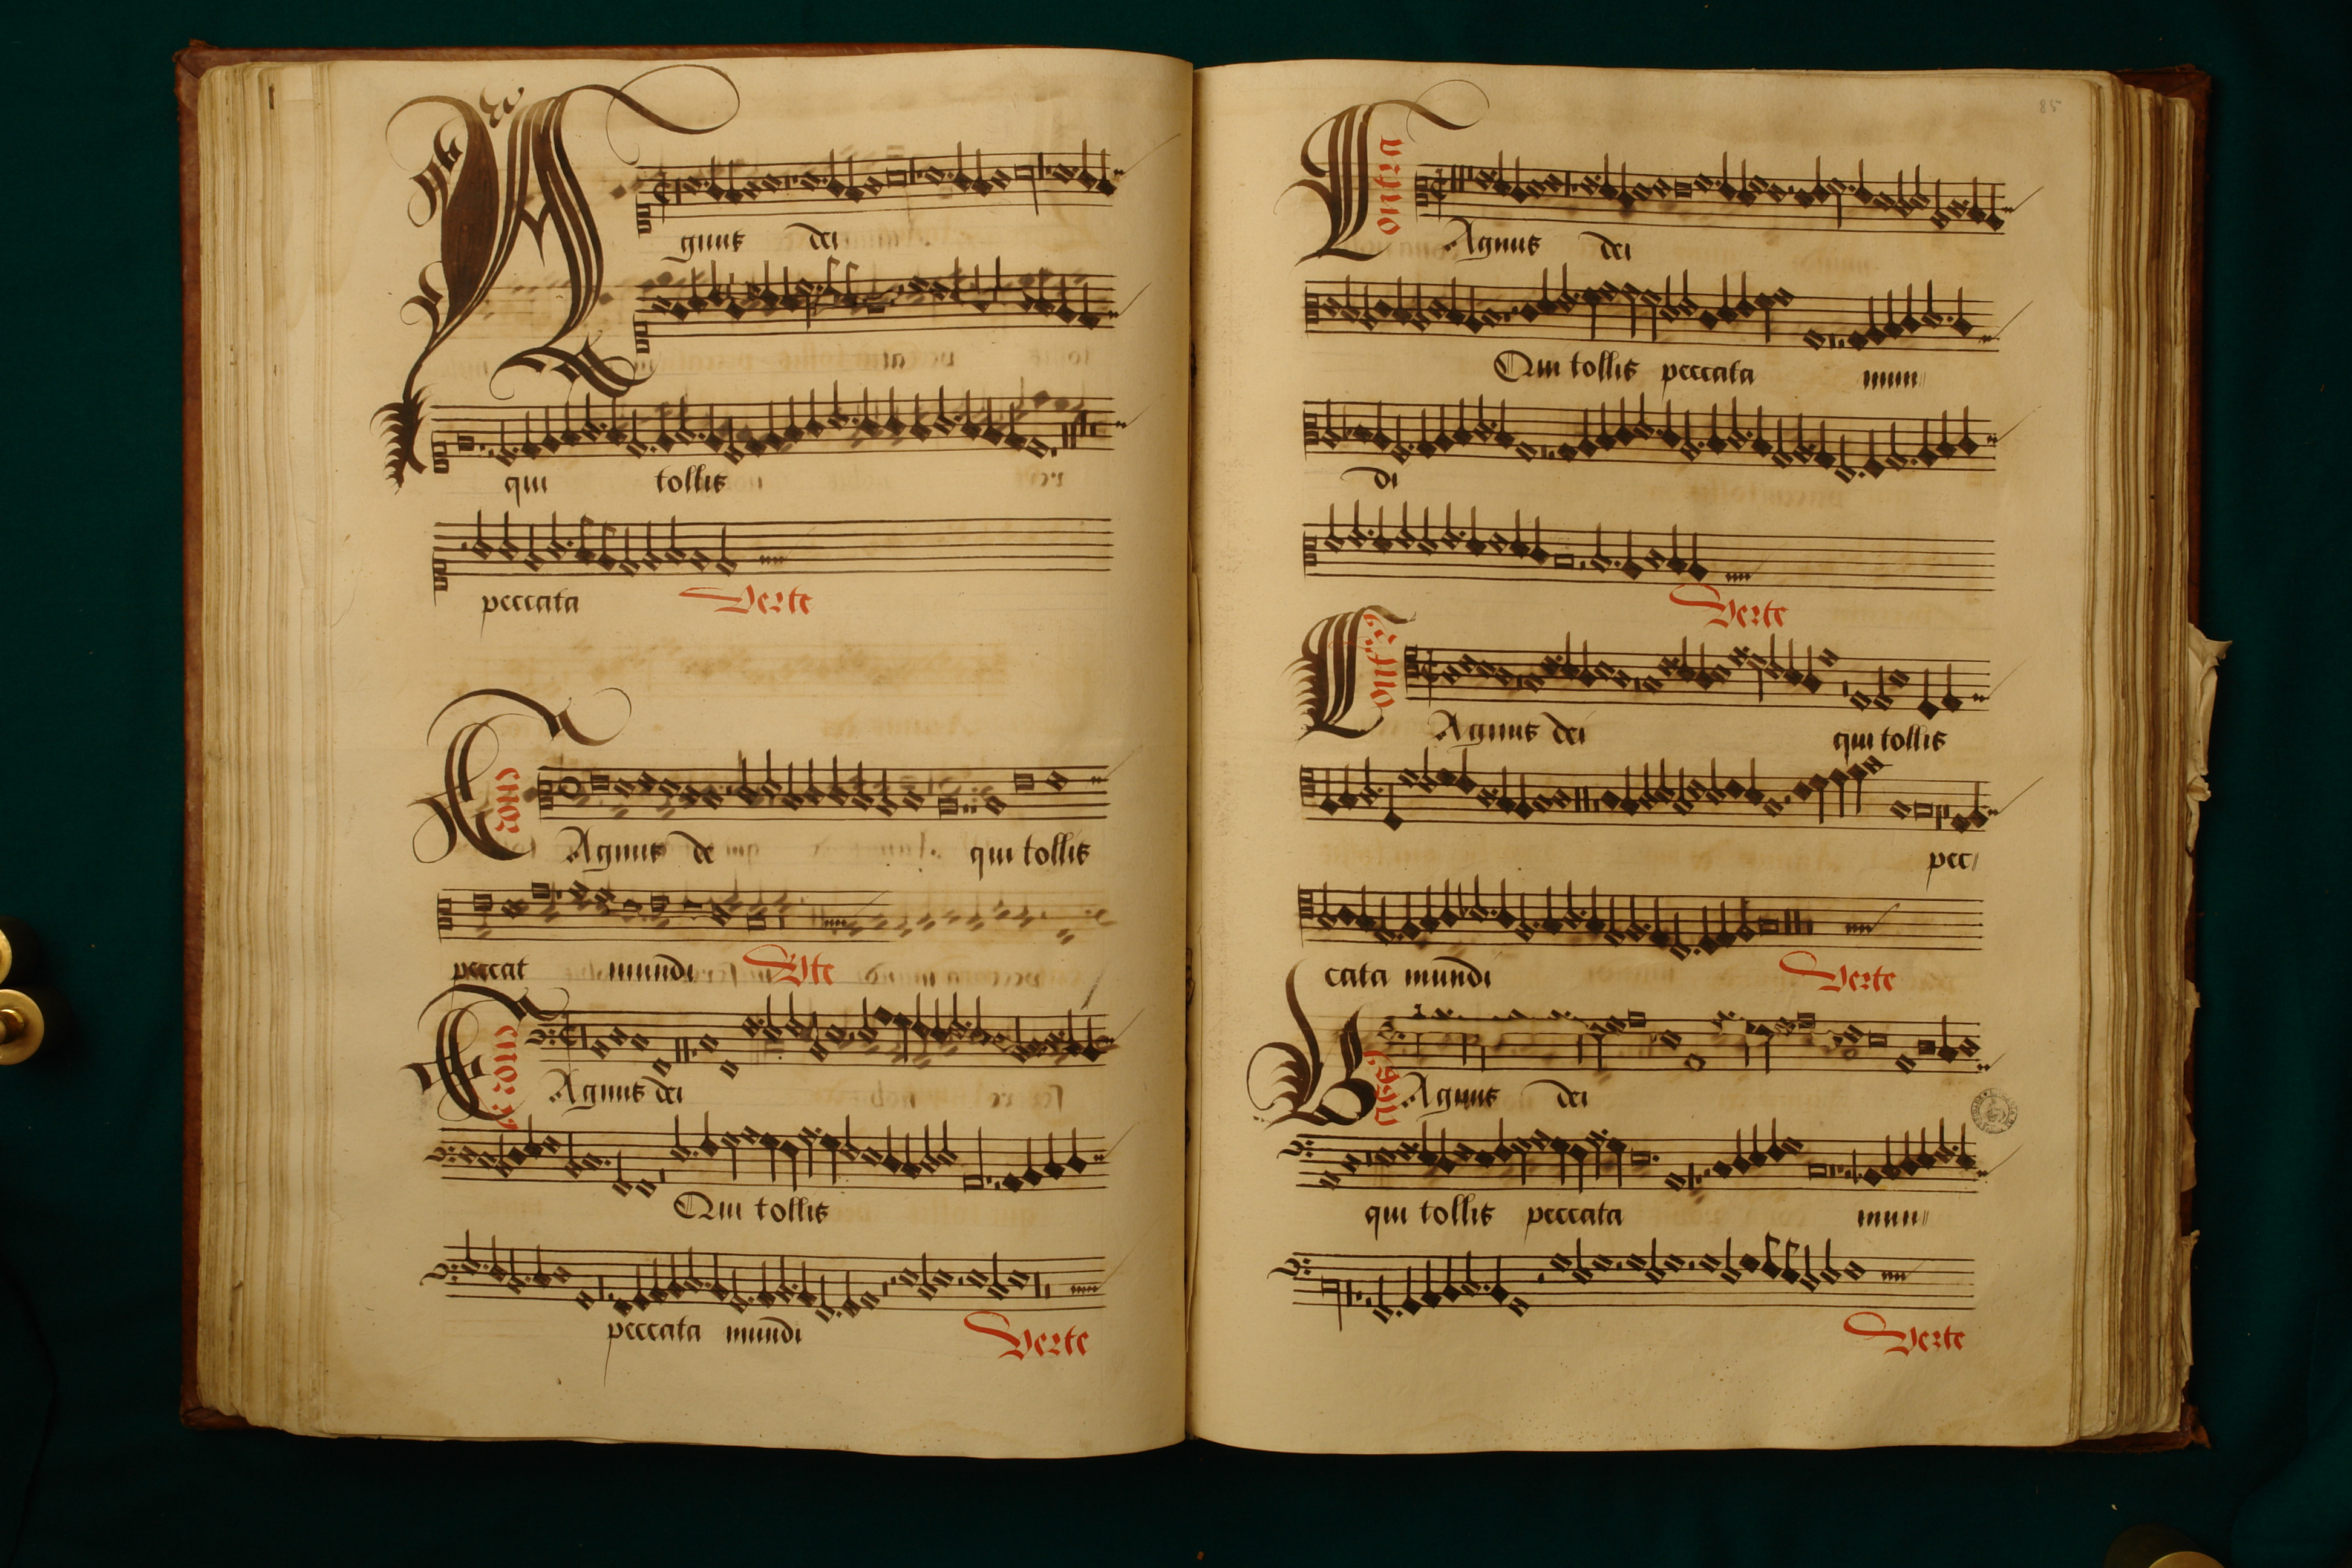 Agnus dei
qui tollis
peccata Verte
Tenor
Agnus de qui tollis
peccat mundi Vte
Tenor 2
Agnus dei
Qui tollis
peccata mundi
Verte
85
Contra
Agnus dei
Qui tollis peccata mun
di
Verte
Contra 2
Agnus dei qui tollis
pec
cata mundi Verte
Bassus
Agnus dei
qui tollis peccata mun
Verte